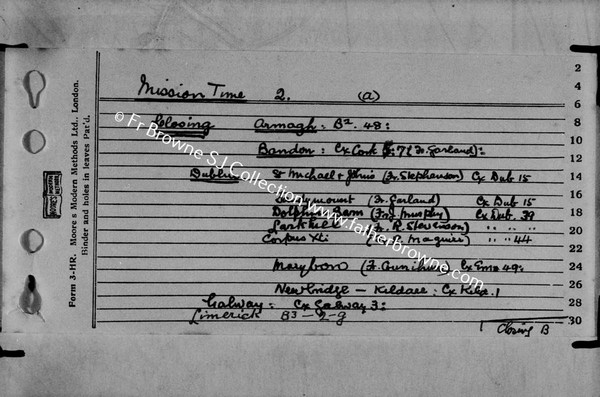 Mission Time 2. (a)
Closing Armagh: B2. 48:
Bandon: Cx Cork 7 (Fr. Garland):
Dublin St Michael & John's (Fr. Stephenson) Cx Dub 15
(Fr. Garland) Cx Dub 15
Dolphins Barn (Fr. Murphy) Cx Dub. 39
Larkhill (Fr. R. Stevenson) " " 20
Corpus Xti (Fr. Maguire) " " 44
Marybоrо (Fr. ) Cx Emo 49:
Newbridge – Kildare: Cx Kild. 1
Galway: Cx Galway 3:
Limerick B3 – 2 - g
Closing B
2
4
6
8
10
12
14
16
18
20
22
24
26
28
30
Form 3-HR. Moore's Modern Methods Ltd., London.
Binder and holes in leaves Pat'd.
© Fr Browne SJ Collection www.fatherbrowne.com